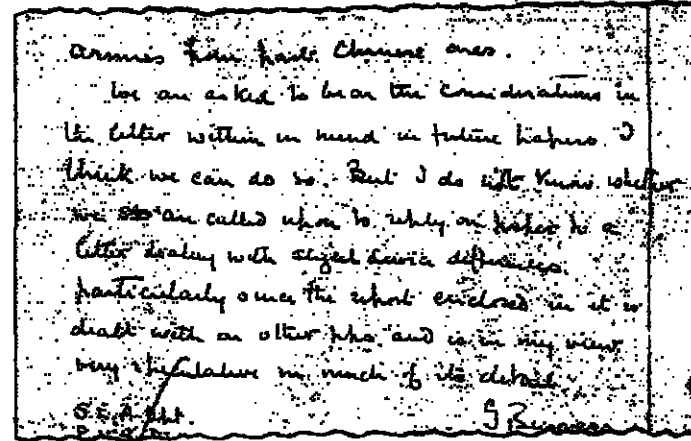 armies from Chinese ones.
We are asked to bear the considerations in
the letter within in mind in future papers. I
think we can do so. But I do not know whether
we are called upon to reply on paper to a
letter dealing with slight differences,
particularly since the report enclosed in it is
dealt with on other pps. and is in my view
very speculative in much of its detail.
S.E.A. Dpt.
G Burgess